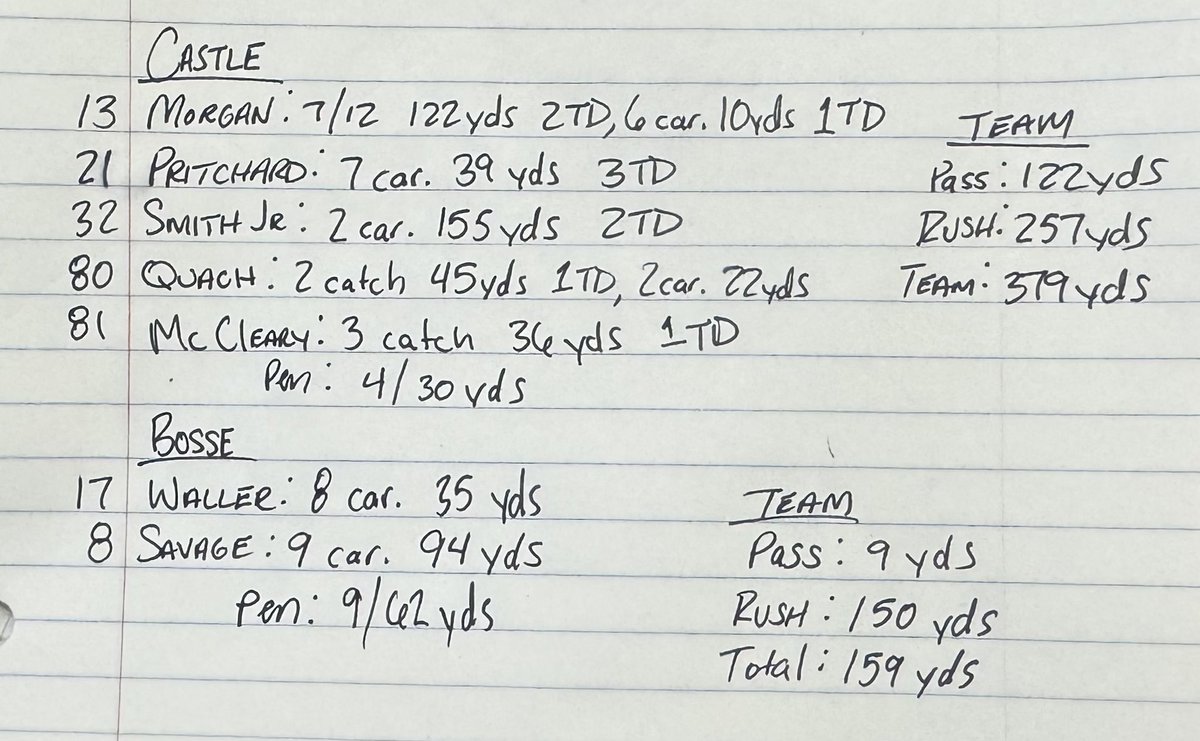 CASTLE
13 MORGAN: 7/12 122yds 2TD, 6 car. 10yds 1TD
21 PRITCHARD: 7 car. 39 yds 3TD
32 SMITH JR: 2 car. 155 yds 2TD
80 QUACH: 2 catch 45yds 1TD, 2car. 22yds
81 McCLEARY: 3 catch 36 yds 1TD
Pen: 4/30 yds
TEAM
Pass: 122yds
RUSH: 257yds
TEAM: 379yds
BOSSE
17 WALLER: 8 car. 35 yds
8 SAVAGE: 9 car. 94 yds
Pen: 9/62 yds
TEAM
Pass: 9 yds
RUSH: 150 yds
Total: 159 yds